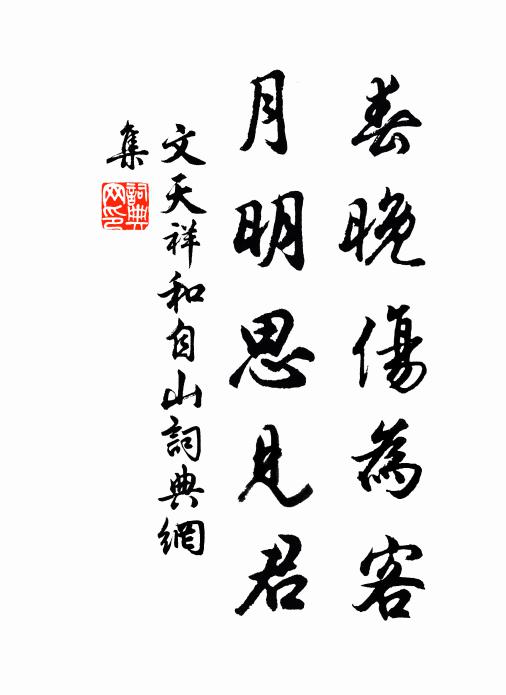 春晚傷為客
月明思見君
文天祥和自山詞典網
集
詞典
网印